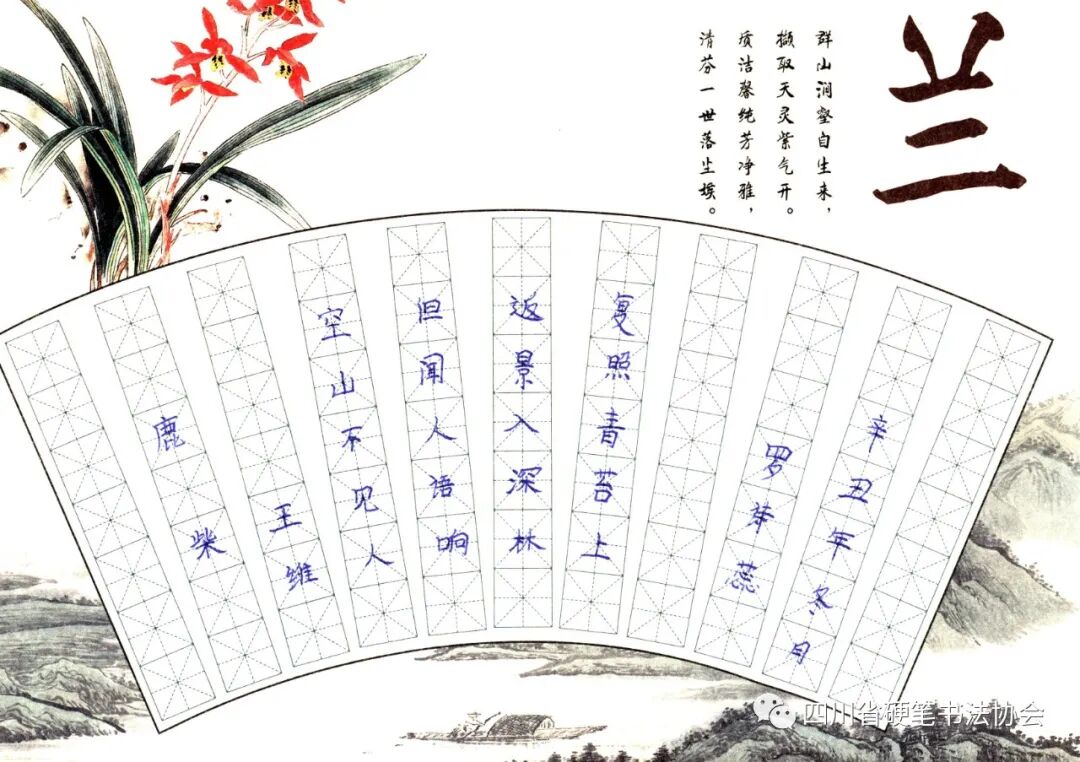 兰
群山涧壑自生来，
撷取天灵紫气开。
质洁馨纯芳净雅，
清芬一世落尘埃。
鹿柴
王维
空山不见人
但闻人语响
返景入深林
复照青苔上
罗梦蕊
辛丑年冬月
四川省硬笔书法协会